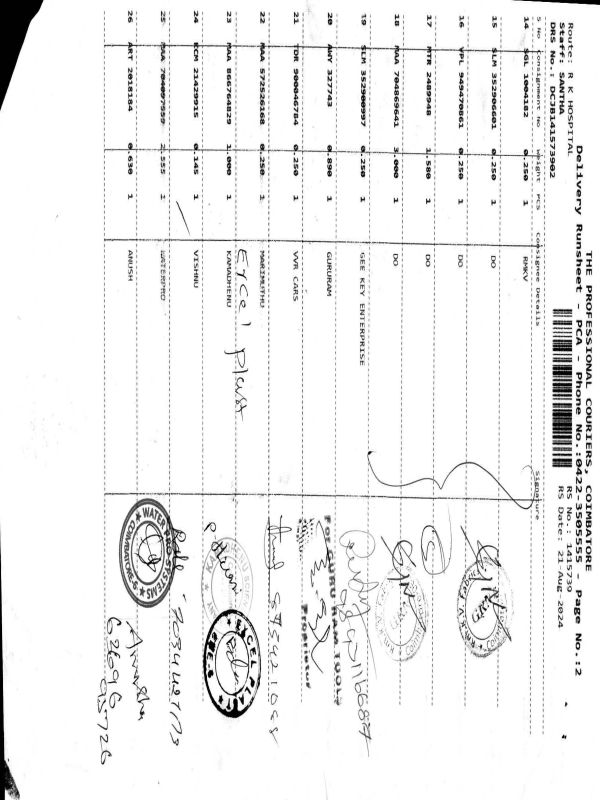 THE PROFESSIONAL COURIERS, COIMBATORE
Delivery Runsheet - PCA - Phone No.:0422-3505555 - Page No.:2
Route: R K HOSPITAL RS No.: 1415739
Staff: SANTHA RS Date: 21-Aug-2024
DRS No.: DCJB141573902
S.No Consignment No Weight PCS Consignee Details Signature
14 SGL 1004182 0.250 1 RMKV
15 SLM 352906601 0.250 1 DO
16 VPL 949470861 0.250 1 DO
17 MTR 2489948 1.580 1 DO
18 MAA 704869641 3.000 1 DO
19 SLM 352900997 0.250 1 GEE KEY ENTERPRISE
20 AWY 327743 0.890 1 GURURAM
For GURU RAM TOOLS
Proprietor
21 TDR 900046784 0.250 1 VVR CARS
22 MAA 572526168 0.250 1 MARIMUTHU
23 MAA 866764829 1.000 1 KAMADHENU
Excel Plast
EXCEL PLAST
24 ECM 21429915 0.145 1 VISHNU
25 MAA 704097559 2.555 1 WATERPRO
WATER PRO SYSTEMS
COIMBATORE-5
26 ART 2018184 0.630 1 ANUSH
Anusha